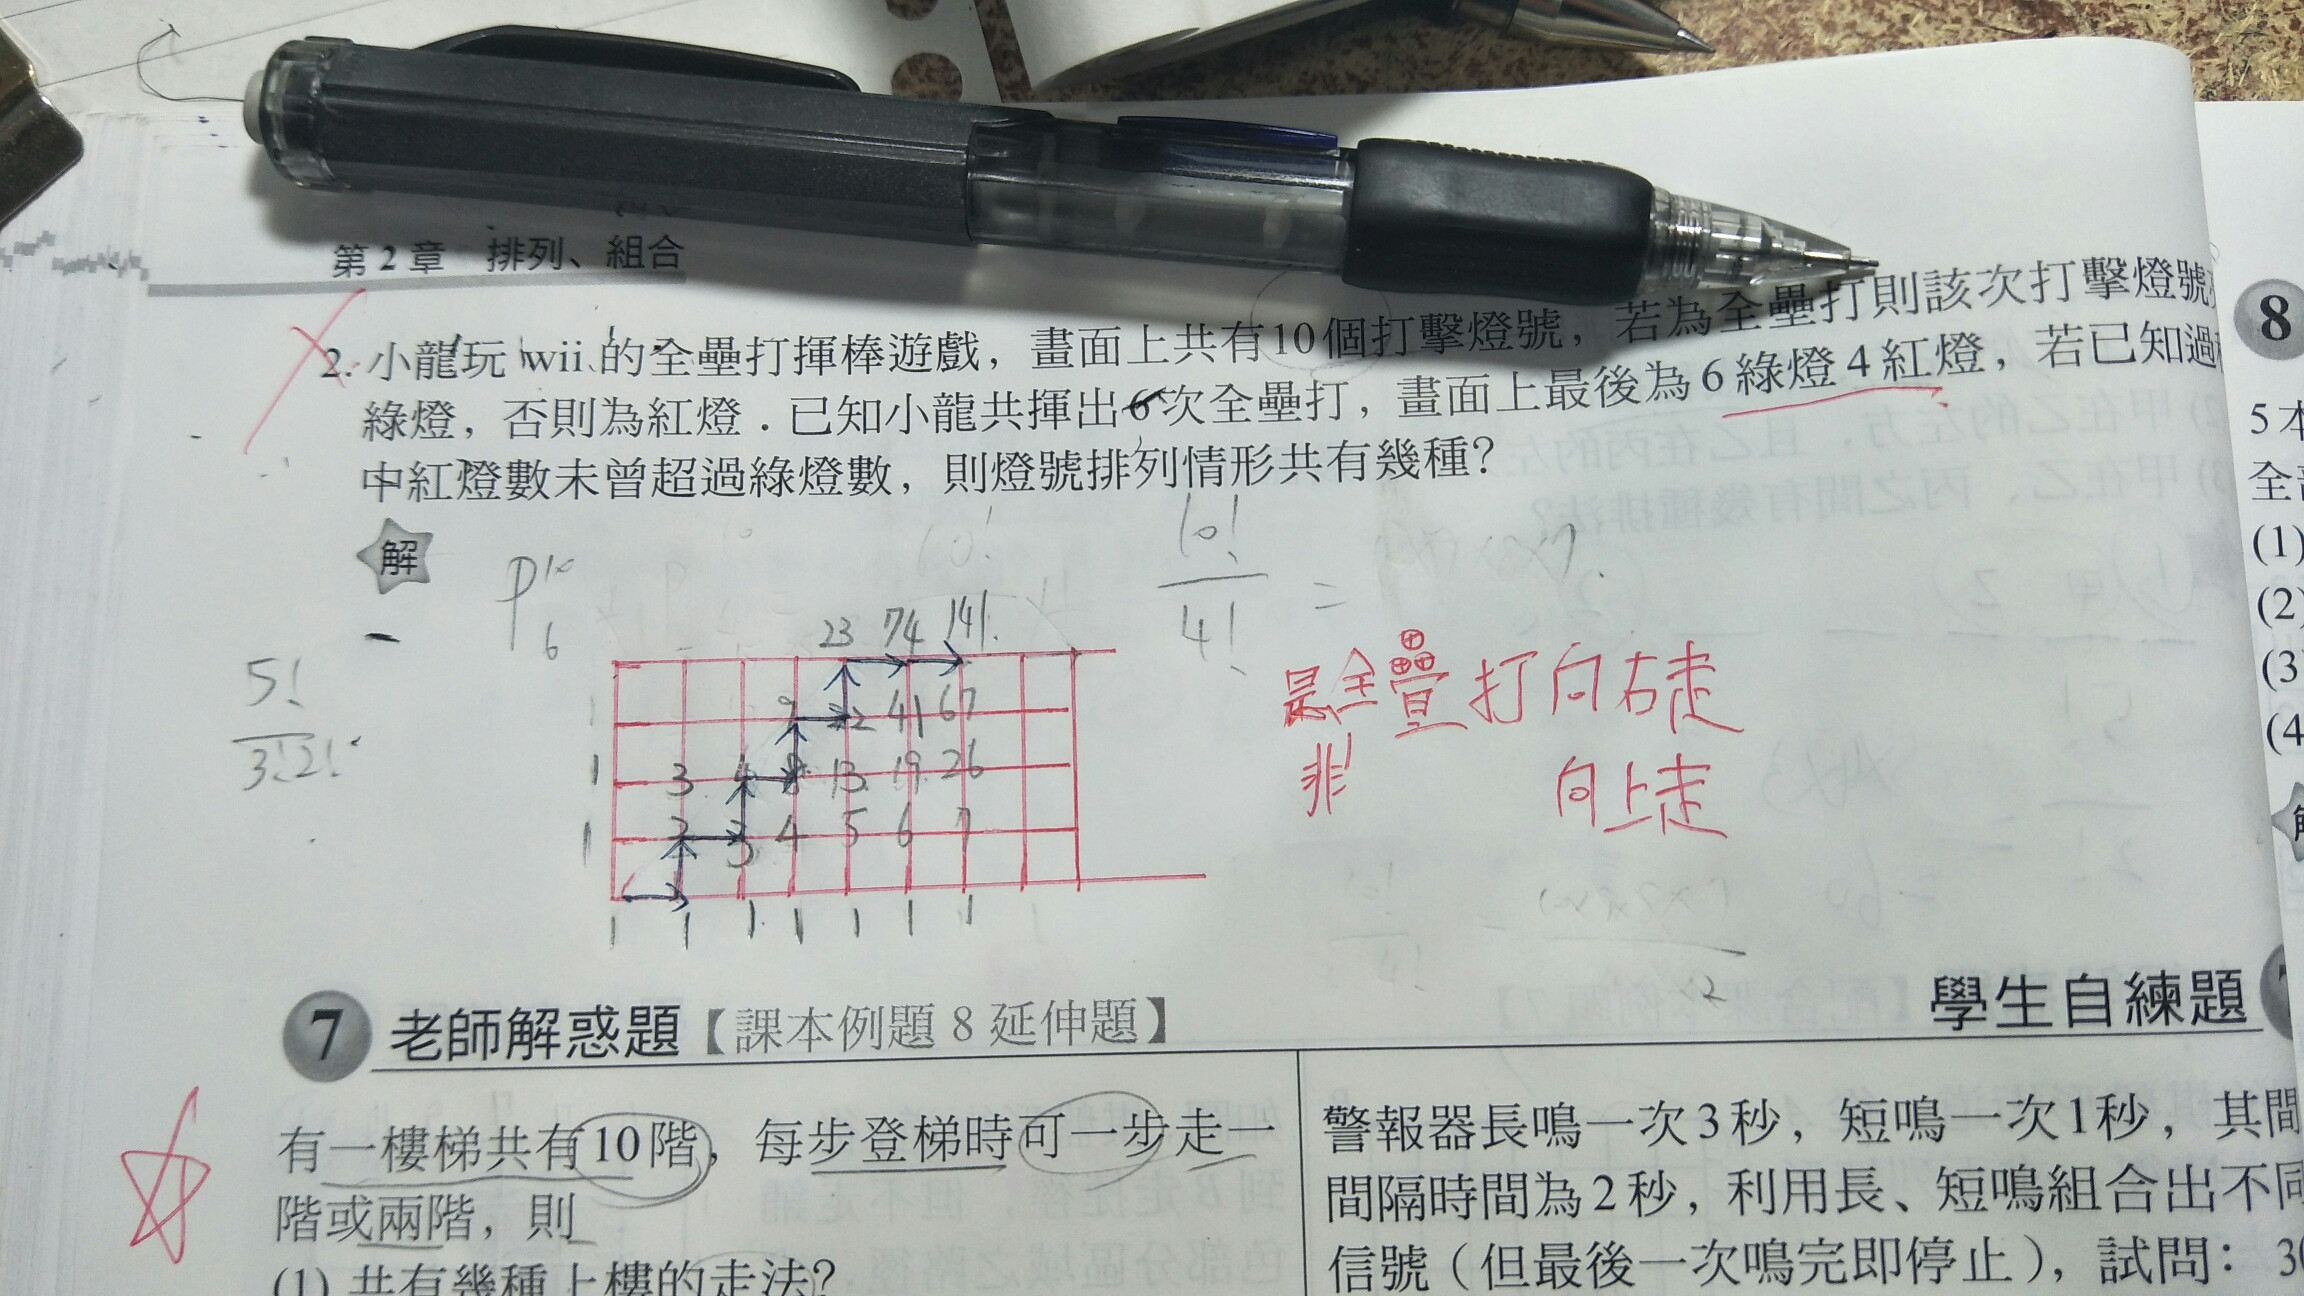 第2章 排列、組合
2. 小龍玩 wii 的全壘打揮棒遊戲，畫面上共有10個打擊燈號，若為全壘打則該次打擊燈號
綠燈，否則為紅燈．已知小龍共揮出6次全壘打，畫面上最後為6綠燈4紅燈，若已知過
中紅燈數未曾超過綠燈數，則燈號排列情形共有幾種？
解
10!
4!
=
5!
3!2!
23 74 141
41 67
3 4 8 13 19 26
1
2 3 4 5 6 7
1
1 1 1 1 1 1 1
是全壘打向右走
非 向上走
7 老師解惑題【課本例題 8 延伸題】
有一樓梯共有10階，每步登梯時可一步走一
階或兩階，則
(1) 共有幾種上樓的走法？
學生自練題
警報器長鳴一次3秒，短鳴一次1秒，其間
間隔時間為2秒，利用長、短鳴組合出不同
信號（但最後一次鳴完即停止），試問：
8
5本
全部
(1)
(2)
(3)
(4)